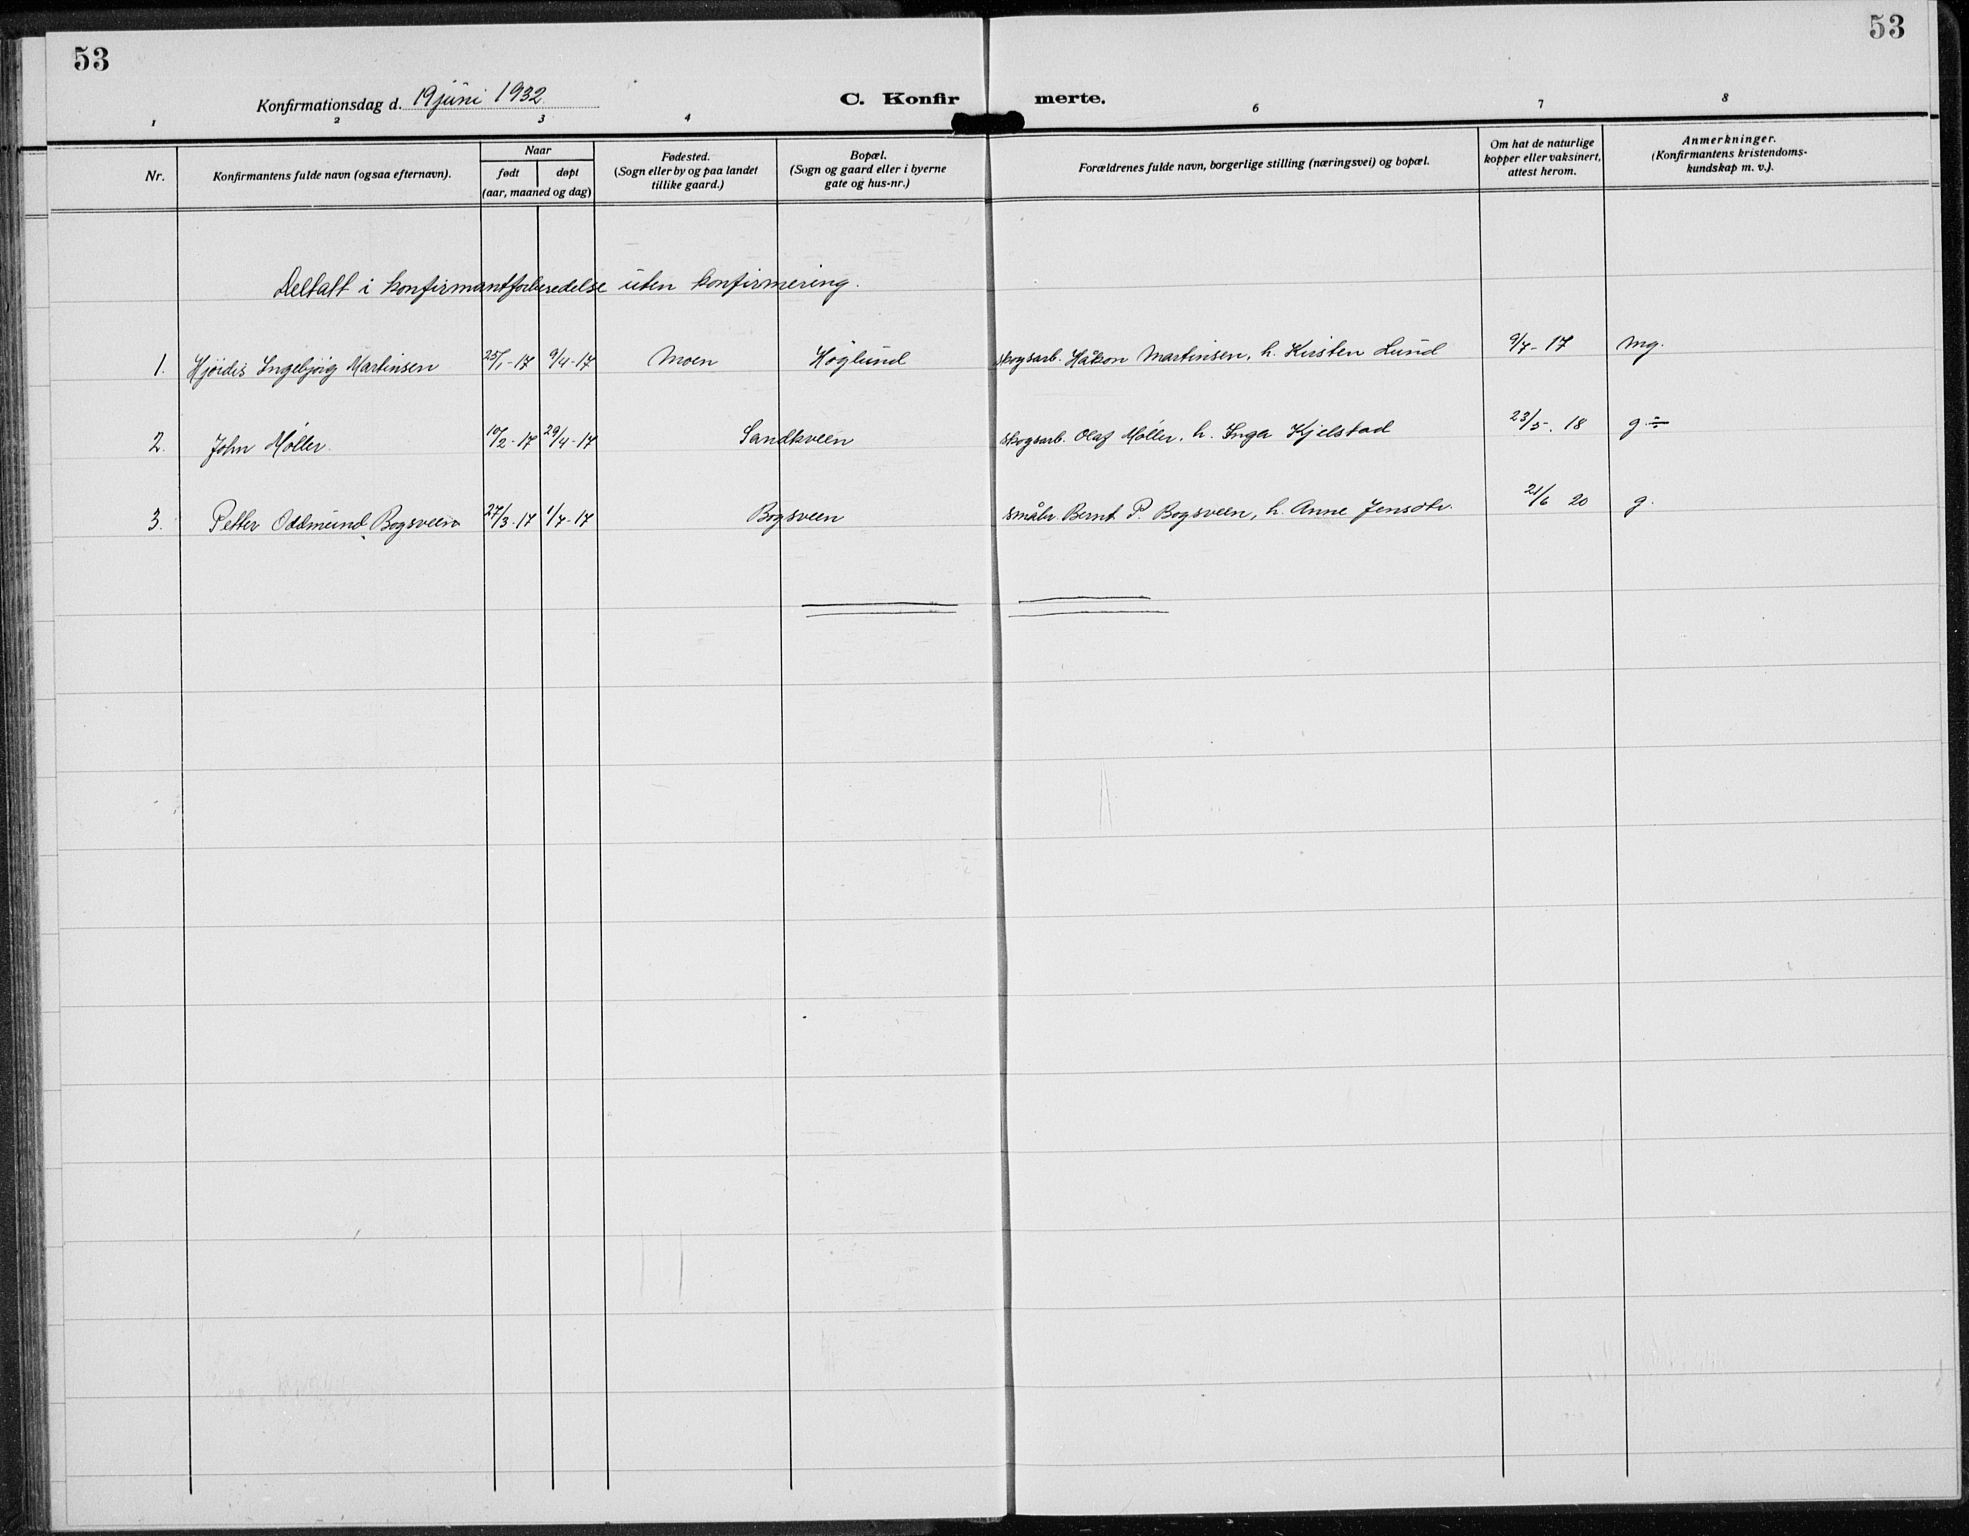 53
53
Konfirmationsdag d. 19 juni 1932
C. Konfir merte.
1 2 3 4 6 7 8
Nr.
Konfirmantens fulde navn (ogsaa efternavn).
Naar
født døpt
(aar, maaned og dag)
Fødested.
(Sogn eller by og paa landet
tillike gaard.)
Bopæl.
(Sogn og gaard eller i byerne
gate og hus-nr.)
Forældrenes fulde navn, borgerlige stilling (næringsvei) og bopæl.
Om hat de naturlige
kopper eller vaksinert,
attest herom.
Anmerkninger.
(Konfirmantens kristendoms-
kundskap m. v.).
Deltatt i konfirmantforberedelse uten konfirmering.
1. Hjördis Ingebjörg Martinsen 25/1-17 9/4-17 Moen Höglund skogsarb. Håkon Martinsen, h. Kirsten Lund 9/7-17 mg.
2. John Möller. 10/2-17 29/4-17 Sandkveen skogsarb. Olaf Möller, h. Inga Kjelstad 23/5. 18 g ÷
3. Petter Oddmund Bogsveen 27/3-17 1/7-17 Bogsveen småbr Bernt P. Bogsveen, h. Anne Jensdtr. 21/6 20 g.